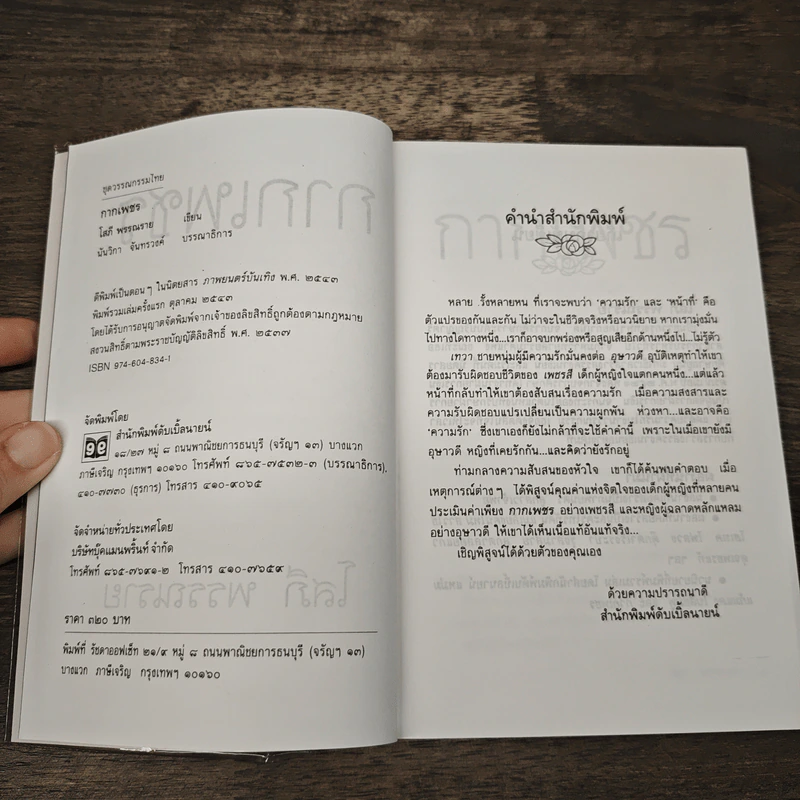 ชุดวรรณกรรมไทย
กากเพชร
โสภี พรรณราย เขียน
นันวิกา จันทรวงศ์ บรรณาธิการ
ตีพิมพ์เป็นตอนๆ ในนิตยสาร ภาพยนตร์บันเทิง พ.ศ. ๒๕๔๓
พิมพ์รวมเล่มครั้งแรก ตุลาคม ๒๕๔๓
โดยได้รับการอนุญาตจัดพิมพ์จากเจ้าของลิขสิทธิ์ถูกต้องตามกฎหมาย
สงวนสิทธิ์ตามพระราชบัญญัติลิขสิทธิ์ พ.ศ. ๒๕๓๗
ISBN 974-604-834-1
จัดพิมพ์โดย
สำนักพิมพ์ดับเบิ้ลนายน์
๑๘/๒๗ หมู่ ๘ ถนนพาณิชยการธนบุรี (จรัญฯ ๑๓) บางแวก
ภาษีเจริญ กรุงเทพฯ ๑๐๑๖๐ โทรศัพท์ ๘๖๕-๗๕๓๒-๓ (บรรณาธิการ),
๔๑๐-๗๗๓๐ (ธุรการ) โทรสาร ๔๑๐-๙๐๖๕
จัดจำหน่ายทั่วประเทศโดย
บริษัทบุ๊คแมนพริ้นท์ จำกัด
โทรศัพท์ ๘๖๕-๗๖๙๑-๒ โทรสาร ๔๑๐-๗๖๕๙
ราคา ๓๒๐ บาท
พิมพ์ที่ รัชดาออฟเซ็ท ๒๑/๙ หมู่ ๘ ถนนพาณิชยการธนบุรี (จรัญฯ ๑๓)
บางแวก ภาษีเจริญ กรุงเทพฯ ๑๐๑๖๐
คำนำสำนักพิมพ์
หลาย รั้งหลายหน ที่เราจะพบว่า ‘ความรัก’ และ ‘หน้าที่’ คือ
ตัวแปรของกันและกัน ไม่ว่าจะในชีวิตจริงหรือนวนิยาย หากเรามุ่งมั่น
ไปทางใดทางหนึ่ง...เราก็อาจบกพร่องหรือสูญเสียอีกด้านหนึ่งไป...ไม่รู้ตัว
เทวา ชายหนุ่มผู้มีความรักมั่นคงต่อ อุษาวดี อุบัติเหตุทำให้เขา
ต้องมารับผิดชอบชีวิตของ เพชรสี เด็กผู้หญิงใจแตกคนหนึ่ง...แต่แล้ว
หน้าที่กลับทำให้เขาต้องสับสนเรื่องความรัก เมื่อความสงสารและ
ความรับผิดชอบแปรเปลี่ยนเป็นความผูกพัน ห่วงหา...และอาจคือ
‘ความรัก’ ซึ่งเขาเองก็ยังไม่กล้าที่จะใช้คำคำนี้ เพราะในเมื่อเขายังมี
อุษาวดี หญิงที่เคยรักกัน...และคิดว่ายังรักอยู่
ท่ามกลางความสับสนของหัวใจ เขาก็ได้ค้นพบคำตอบ เมื่อ
เหตุการณ์ต่างๆ ได้พิสูจน์คุณค่าแห่งจิตใจของเด็กผู้หญิงที่หลายคน
ประเมินค่าเพียง กากเพชร อย่างเพชรสี และหญิงผู้ฉลาดหลักแหลม
อย่างอุษาวดี ให้เขาได้เห็นเนื้อแท้อันแท้จริง...
เชิญพิสูจน์ได้ด้วยตัวของคุณเอง
ด้วยความปรารถนาดี
สำนักพิมพ์ดับเบิ้ลนายน์